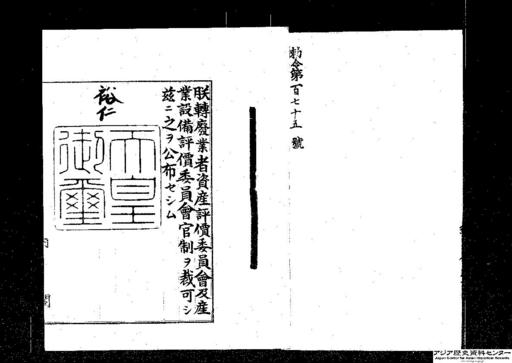 勅令第百七十五號
朕轉廢業者資産評價委員會及産
業設備評價委員會官制ヲ裁可シ
玆ニ之ヲ公布セシム
裕仁
天皇
御璽
内
閣
アジア歴史資料センター
Japan Center for Asian Historical Records